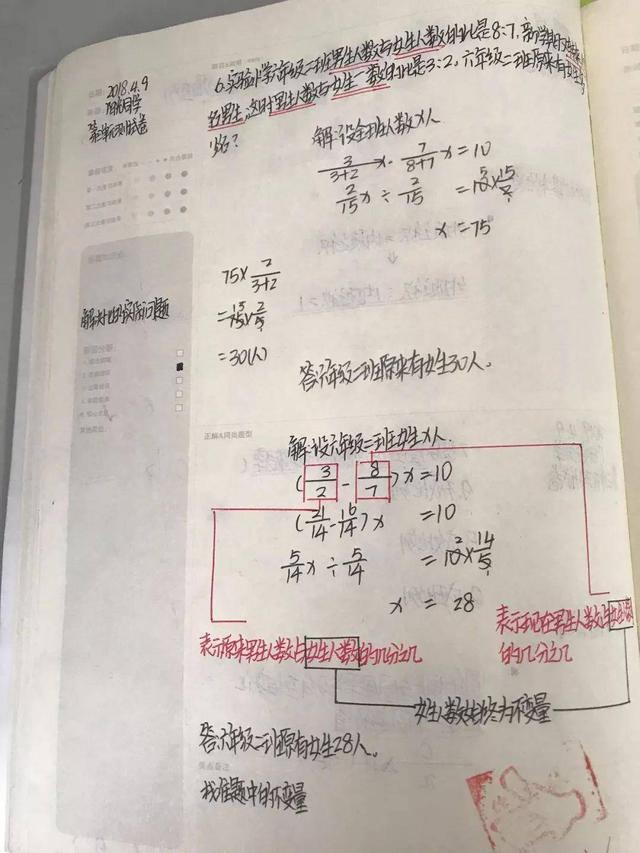 2018.4.9
第单元测试卷
6.实验小学六年级二班男生人数与女生人数的比是8:7,新学期
男生,这时男生人数与女生人数的比是3:2,六年级二班原来有女生
少名?
解:设全班人数x人
3/3+2 x - 7/8+7 x = 10
2/15 x ÷ 2/15 = 10×15/2
x = 75
75×2/3+2
=75×2/5
=30(人)
解决比的实际问题
答:六年级二班原来有女生30人。
正解&同类题型
解:设六年级二班女生x人.
(3/2 - 8/7)x=10
(21/14-16/14)x =10
5/14 x ÷ 5/14 =10×14/5
x = 28
表示原来男生人数占女生人数的几分之几
表示现在男生人数占女生人数的几分之几
女生人数始终为不变量
答:六年级二班原有女生28人。
找准题中的不变量